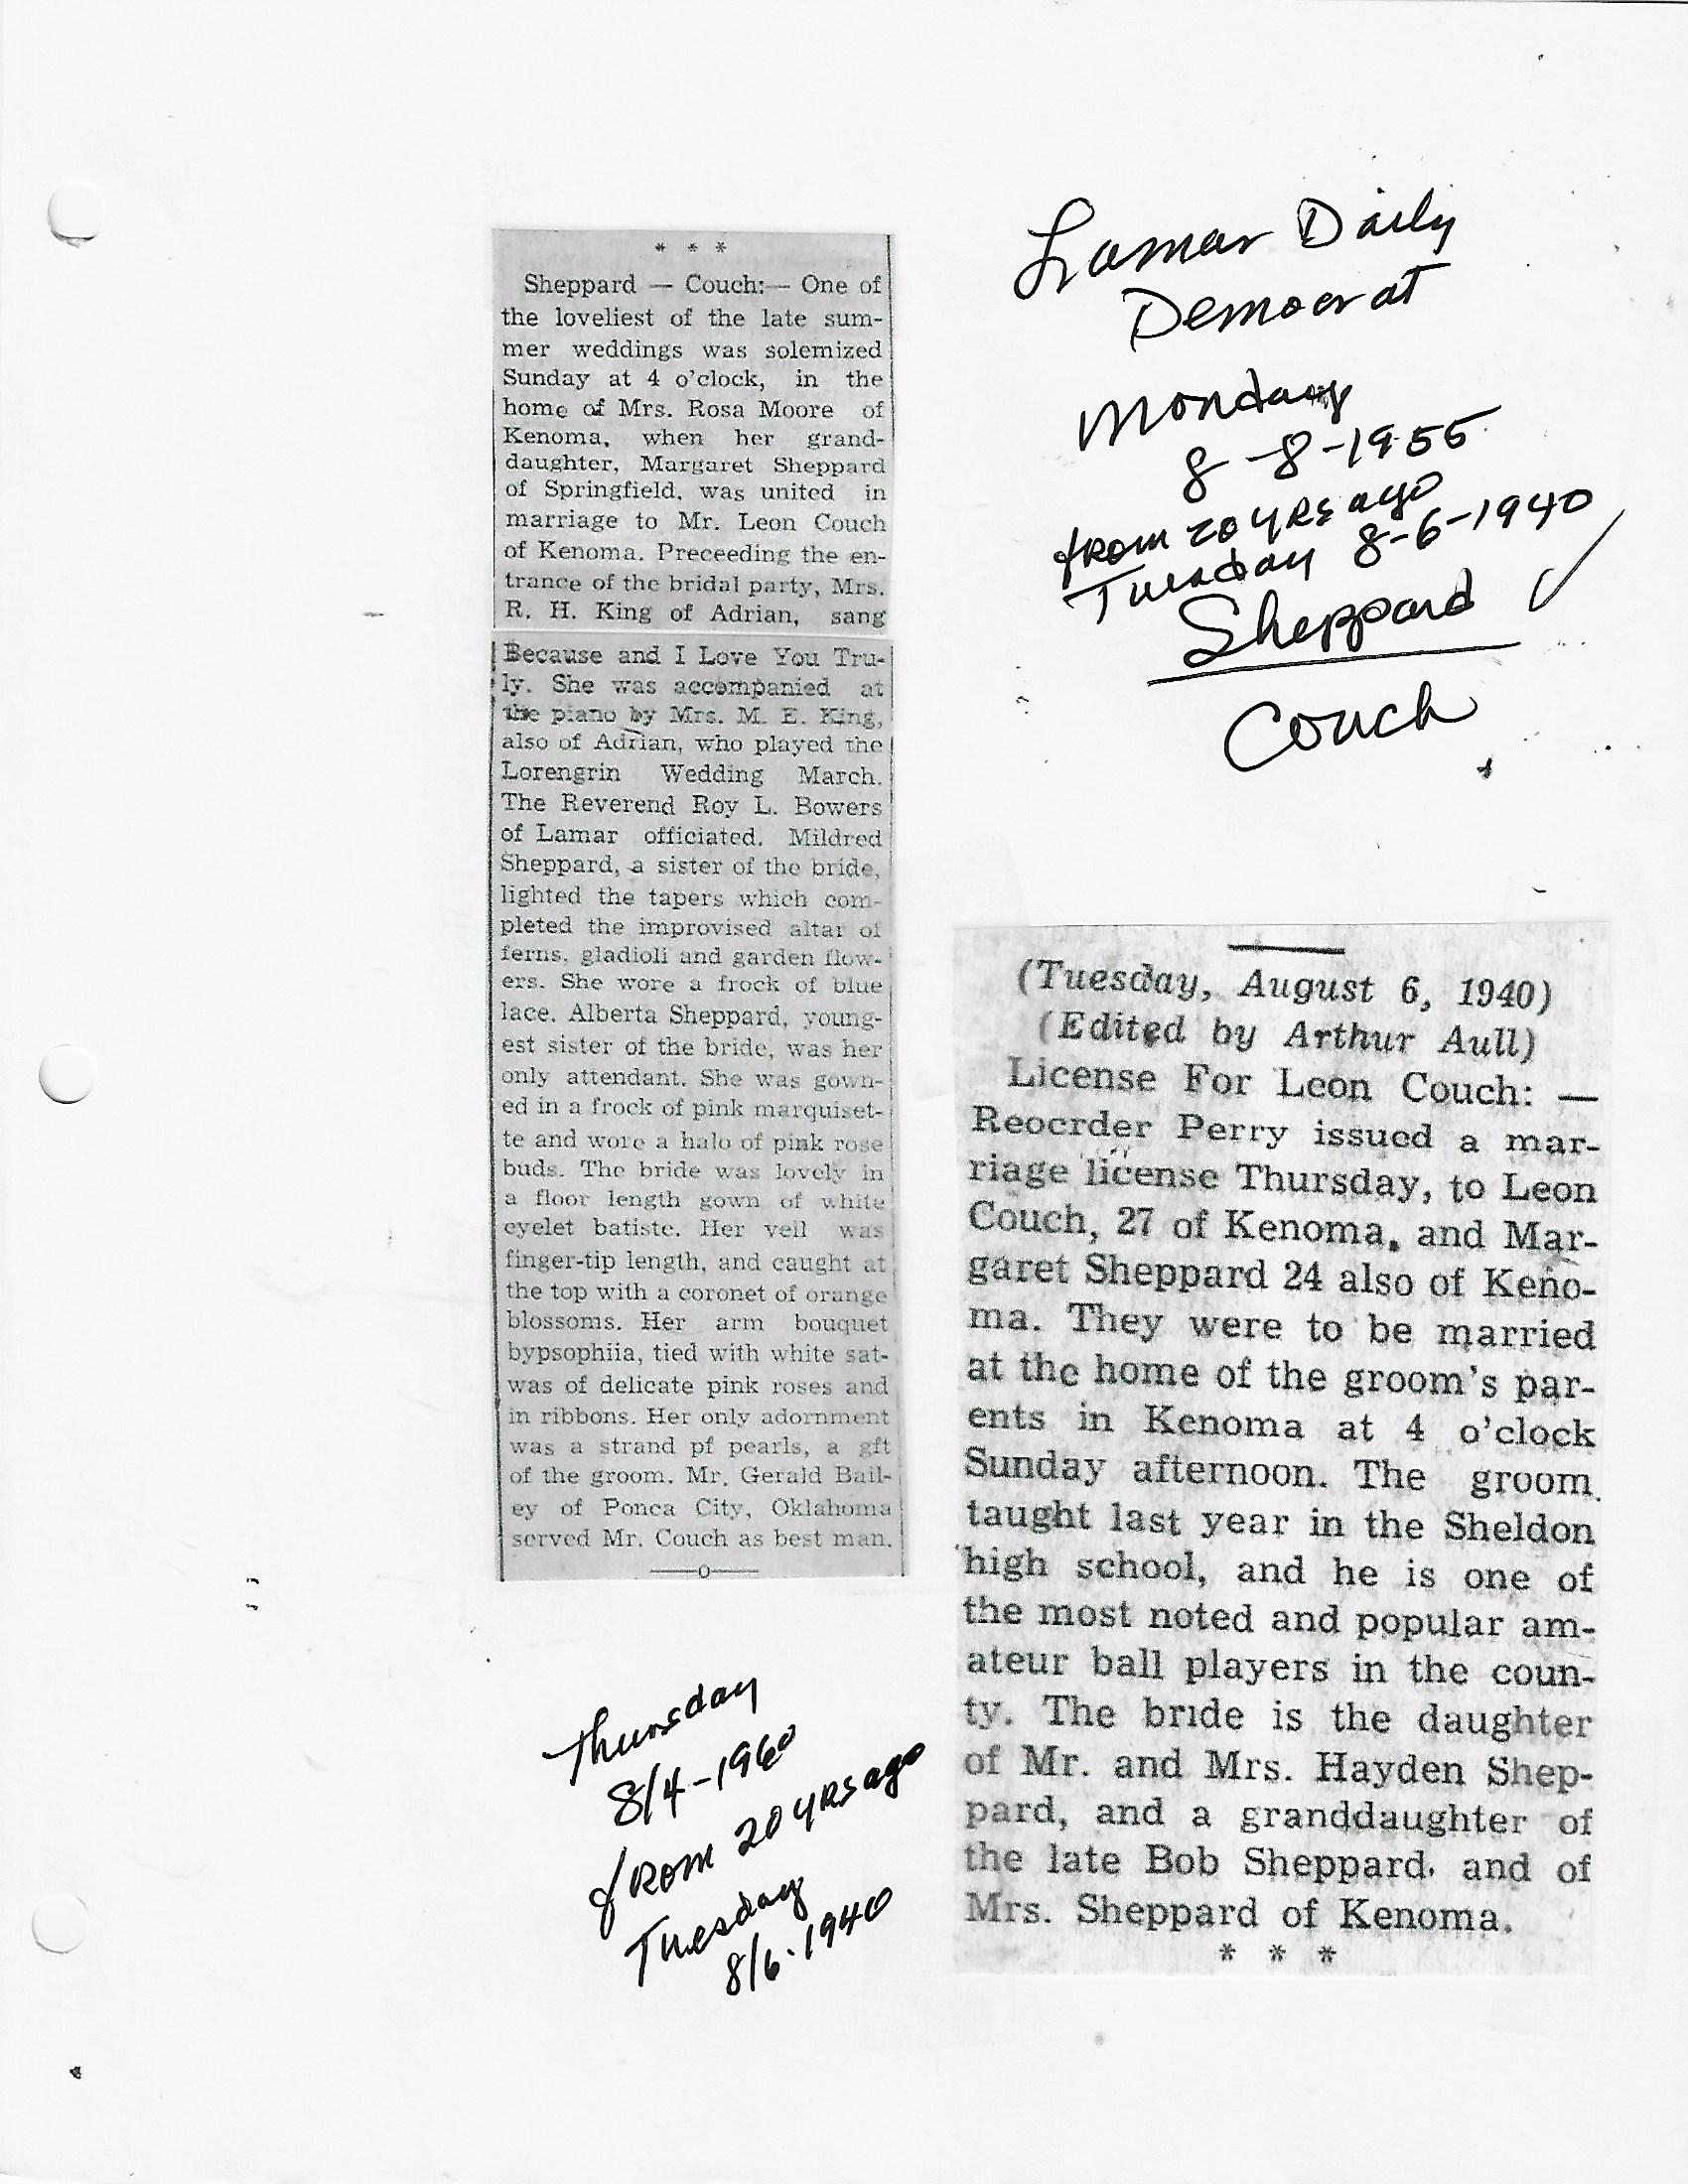 * * *
Sheppard — Couch:— One of
the loveliest of the late sum-
mer weddings was solemized
Sunday at 4 o'clock, in the
home of Mrs. Rosa Moore of
Kenoma, when her grand-
daughter, Margaret Sheppard
of Springfield, was united in
marriage to Mr. Leon Couch
of Kenoma. Preceeding the en-
trance of the bridal party, Mrs.
R. H. King of Adrian, sang
Because and I Love You Tru-
ly. She was accompanied at
the piano by Mrs. M. E. King,
also of Adrian, who played the
Lorengrin Wedding March.
The Reverend Roy L. Bowers
of Lamar officiated. Mildred
Sheppard, a sister of the bride,
lighted the tapers which com-
pleted the improvised altar of
ferns, gladioli and garden flow-
ers. She wore a frock of blue
lace. Alberta Sheppard, young-
est sister of the bride, was her
only attendant. She was gown-
ed in a frock of pink marquiset-
te and wore a halo of pink rose
buds. The bride was lovely in
a floor length gown of white
eyelet batiste. Her veil was
finger-tip length, and caught at
the top with a coronet of orange
blossoms. Her arm bouquet
bypsophiia, tied with white sat-
was of delicate pink roses and
in ribbons. Her only adornment
was a strand pf pearls, a gft
of the groom. Mr. Gerald Bail-
ey of Ponca City, Oklahoma
served Mr. Couch as best man.
——o——
Thursday
8/4-1960
from 20 yrs ago
Tuesday
8/6-1940
Lamar Daily
Democrat
Monday
8-8-1955
from 20 yrs ago
Tuesday 8-6-1940
Sheppard ✓
Couch
(Tuesday, August 6, 1940)
(Edited by Arthur Aull)
License For Leon Couch: —
Reocrder Perry issued a mar-
riage license Thursday, to Leon
Couch, 27 of Kenoma, and Mar-
garet Sheppard 24 also of Keno-
ma. They were to be married
at the home of the groom's par-
ents in Kenoma at 4 o'clock
Sunday afternoon. The groom
taught last year in the Sheldon
high school, and he is one of
the most noted and popular am-
ateur ball players in the coun-
ty. The bride is the daughter
of Mr. and Mrs. Hayden Shep-
pard, and a granddaughter of
the late Bob Sheppard, and of
Mrs. Sheppard of Kenoma.
* * *